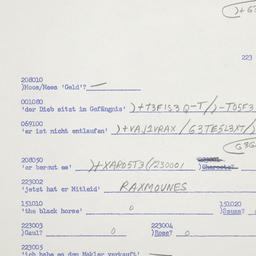 )+G3
223
208010
)Moos/Mees 'Geld'? —
001080
'der Dieb sitzt im Gefängnis' )++3F1S3 Q-T/)-T05F3
069100
'er ist nicht entlaufen' )+VAJ1VRAX/G3TE5L3XT/)
G3G
208050
'er bereut es' )+XAR05T3(/230001
223002
'jetzt hat er Mitleid' RAXMOUNES
151010 151020
'the black horse' 0 )Gsums?
223003 223004
)Gaul? 0 )Ross? 0
223005
'ich habe an den Makler verkauft'